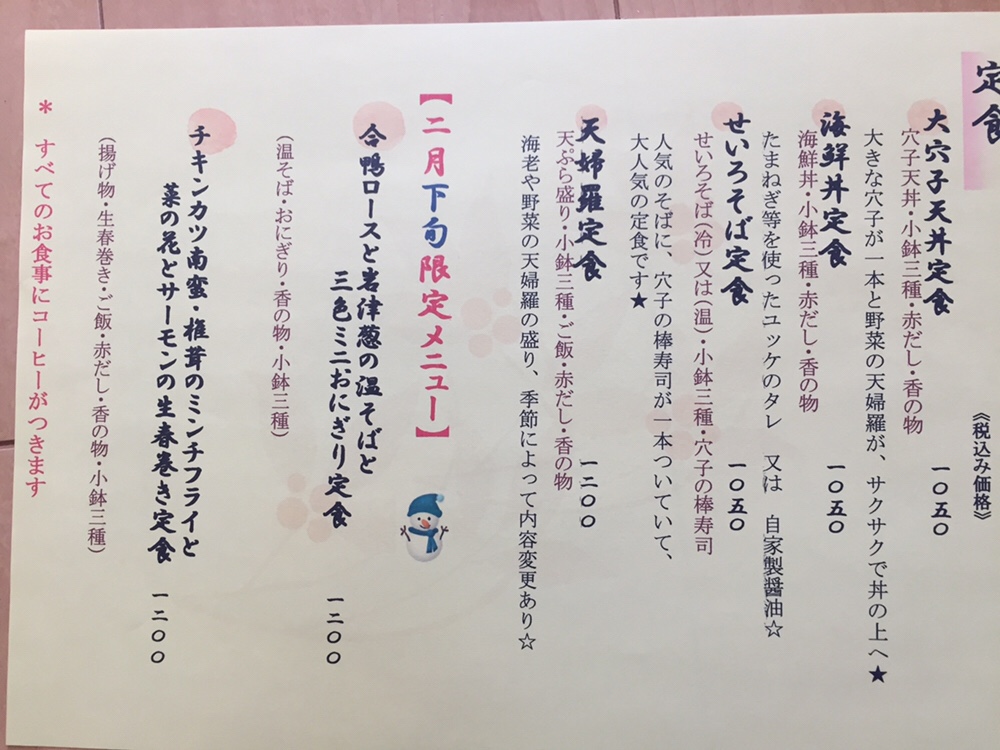 定食
《税込み価格》
大穴子天丼定食 一〇五〇
穴子天丼・小鉢三種・赤だし・香の物
大きな穴子が一本と野菜の天婦羅が、サクサクで丼の上へ★
海鮮丼定食 一〇五〇
海鮮丼・小鉢三種・赤だし・香の物
たまねぎ等を使ったユッケのタレ 又は 自家製醤油☆
せいろそば定食 一〇五〇
せいろそば(冷)又は(温)・小鉢三種・穴子の棒寿司
人気のそばに、穴子の棒寿司が一本ついていて、
大人気の定食です★
天婦羅定食 一二〇〇
天ぷら盛り・小鉢三種・ご飯・赤だし・香の物
海老や野菜の天婦羅の盛り、季節によって内容変更あり☆
【二月下旬限定メニュー】
合鴨ロースと岩津葱の温そばと
三色ミニおにぎり定食 一二〇〇
(温そば・おにぎり・香の物・小鉢三種)
チキンカツ南蛮・椎茸のミンチフライと
菜の花とサーモンの生春巻き定食 一二〇〇
(揚げ物・生春巻き・ご飯・赤だし・香の物・小鉢三種)
* すべてのお食事にコーヒーがつきます